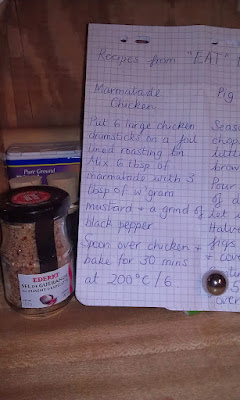 Recipes from "EAT"
Marmalade
Chicken
Put 6 large chicken
drumsticks on a foil
lined roasting tin
Mix 6 tbsp of
marmalade with 3
tbsp of w'gram
mustard + a grind of
black pepper
Spoon over chicken +
bake for 30 mins
at 200°C/6
Pig
Seas
chop
litt
brow
Pour
of d
Let
Halv
figs
+ co
5
over
Pure Ground
EDEREY
SEL DE GUERANDE